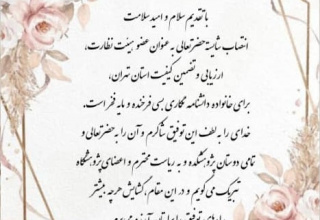 با تقدیم سلام و امید سلامت
انتصاب شایسته حضرتعالی به عنوان عضو هیئت نظارت،
ارزیابی و تضمین کیفیت استان تهران،
برای خانواده دانشنامه نگاری بسی فرخنده و مایه فخر است.
خدای را به لطف این توفیق شاکرم و آن را به حضرتعالی و
تمامی دوستان پژوهشکده و به ریاست محترم و اعضای پژوهشگاه
تبریک می‌گویم و در این مقام، گشایش هرچه بیشتر